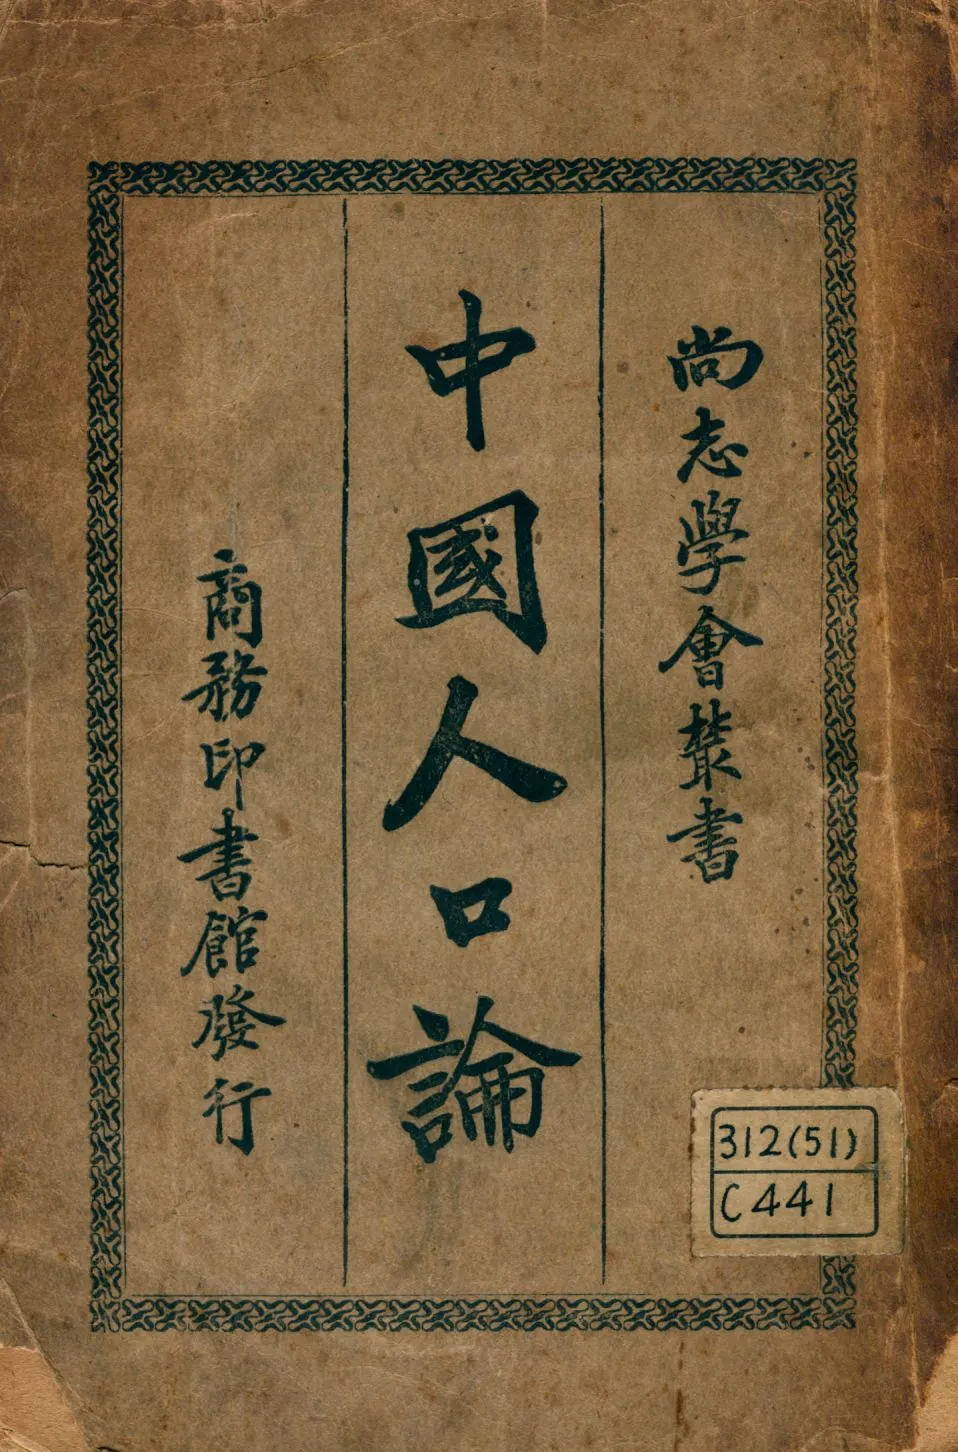 尚志學會叢書
中國人口論
商務印書館發行
312(51)
C441